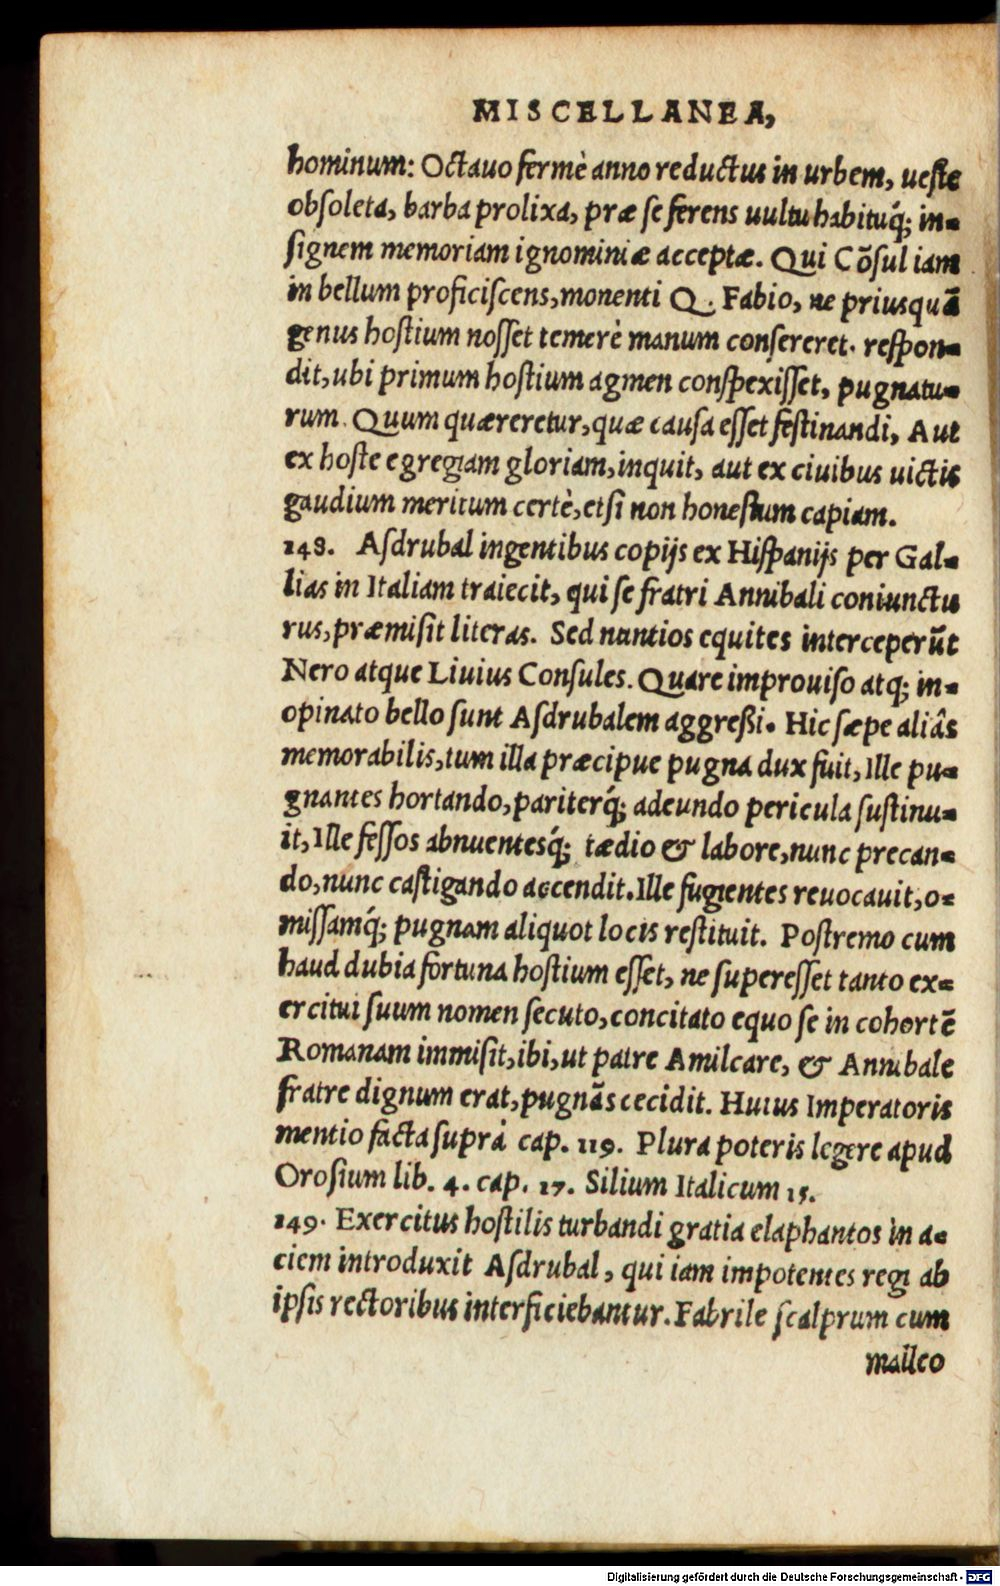 MISCELLANEA,
hominum: Octauo fermè anno reductus in urbem, ueste
obſoleta, barba prolixa, præ ſe ferens uultu habituq́; in-
ſignem memoriam ignominiæ acceptæ. Qui Cōſul iam
in bellum proficiſcens, monenti Q. Fabio, ne priusquā
genus hoſtium noſſet temerè manum conſereret. reſpon-
dit, ubi primum hoſtium agmen conſpexiſſet, pugnatu-
rum. Quum quæreretur, quæ cauſa eſſet feſtinandi, Aut
ex hoſte egregiam gloriam, inquit, aut ex ciuibus uictis
gaudium meritum certè, etſi non honeſtum capiam.
148. Aſdrubal ingentibus copijs ex Hiſpanijs per Gal-
lias in Italiam traiecit, qui ſe fratri Annibali coniunctu
rus, præmiſit literas. Sed nuntios equites interceperūt
Nero atque Liuius Conſules. Quare improuiſo atq; in-
opinato bello ſunt Aſdrubalem aggreßi. Hic ſæpe aliâs
memorabilis, tum illa præcipue pugna dux fuit, Ille pu-
gnantes hortando, pariterq́; adeundo pericula ſuſtinu-
it, Ille feſſos abnuentesq́; tædio & labore, nunc precan-
do, nunc caſtigando accendit. Ille fugientes reuocauit, o-
miſſamq́; pugnam aliquot locis reſtituit. Poſtremo cum
haud dubia fortuna hoſtium eſſet, ne ſupereſſet tanto ex-
ercitui ſuum nomen ſecuto, concitato equo ſe in cohortē
Romanam immiſit, ibi, ut patre Amilcare, & Annibale
fratre dignum erat, pugnās cecidit. Huius Imperatoris
mentio facta ſuprà cap. 119. Plura poteris legere apud
Oroſium lib. 4. cap. 17. Silium Italicum 15.
149. Exercitus hoſtilis turbandi gratia elaphantos in a-
ciem introduxit Aſdrubal, qui iam impotentes regi ab
ipſis rectoribus interficiebantur. Fabrile ſcalprum cum
malleo
Digitalisierung gefördert durch die Deutsche Forschungsgemeinschaft - DFG